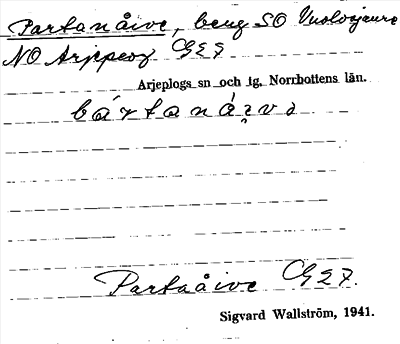 Partanåive, berg SO Vuolvojaure
NO Arjeplog CGEF
Arjeplogs sn och tg. Norrbottens län.
bártanáṛvɘ
Partaåive CGEF.
Sigvard Wallström, 1941.